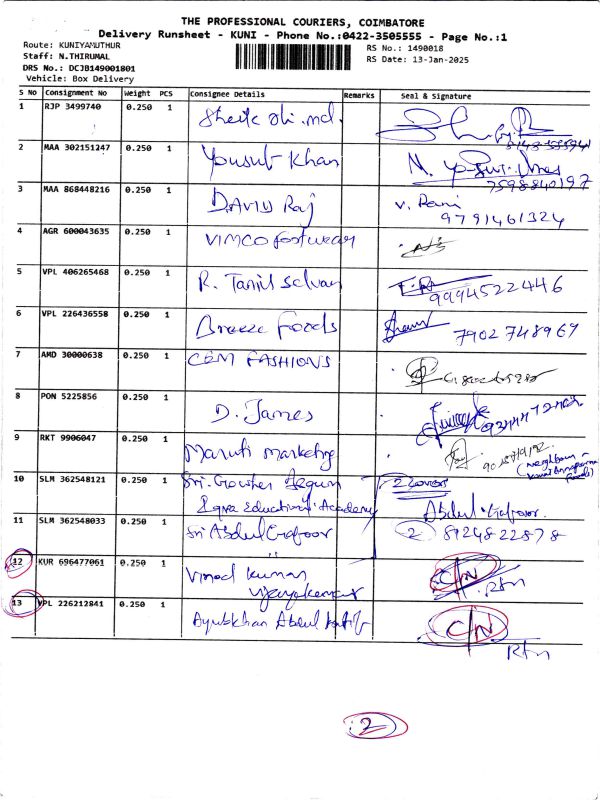 THE PROFESSIONAL COURIERS, COIMBATORE
Delivery Runsheet - KUNI - Phone No.:0422-3505555 - Page No.:1
Route: KUNIYAMUTHUR
RS No.: 1490018
Staff: N.THIRUMAL
RS Date: 13-Jan-2025
DRS No.: DCJB149001801
Vehicle: Box Delivery
S No Consignment No Weight PCS Consignee Details Remarks Seal & Signature
1 RJP 3499740 0.250 1 Sheik Ali.md.
2 MAA 302151247 0.250 1 Yousuf Khan
7598840197
3 MAA 868448216 0.250 1 DAVID Raj V. Rani
9791461324
4 AGR 600043635 0.250 1 VIMCO footwear
5 VPL 406265468 0.250 1 R. Tamil selvan
9994522446
6 VPL 226436558 0.250 1 Breeze Foods
7902748967
7 AMD 30000638 0.250 1 CEM FASHIONS
8 PON 5225856 0.250 1 D. James
9 RKT 9906047 0.250 1 Maruti marketing
(Neighbour -
Foods)
10 SLM 362548121 0.250 1 Sri. Gowsher Begum 2 Cover
Iqra Educational Academy Abdul Gafoor.
11 SLM 362548033 0.250 1 Sri Abdul Gafoor 2 8124822878
12 KUR 696477061 0.250 1 Vinod Kumar C/N
Vijayakumar Rtn
13 VPL 226212841 0.250 1 Ayubkhan Abdul Latif C/N
Rtn
2